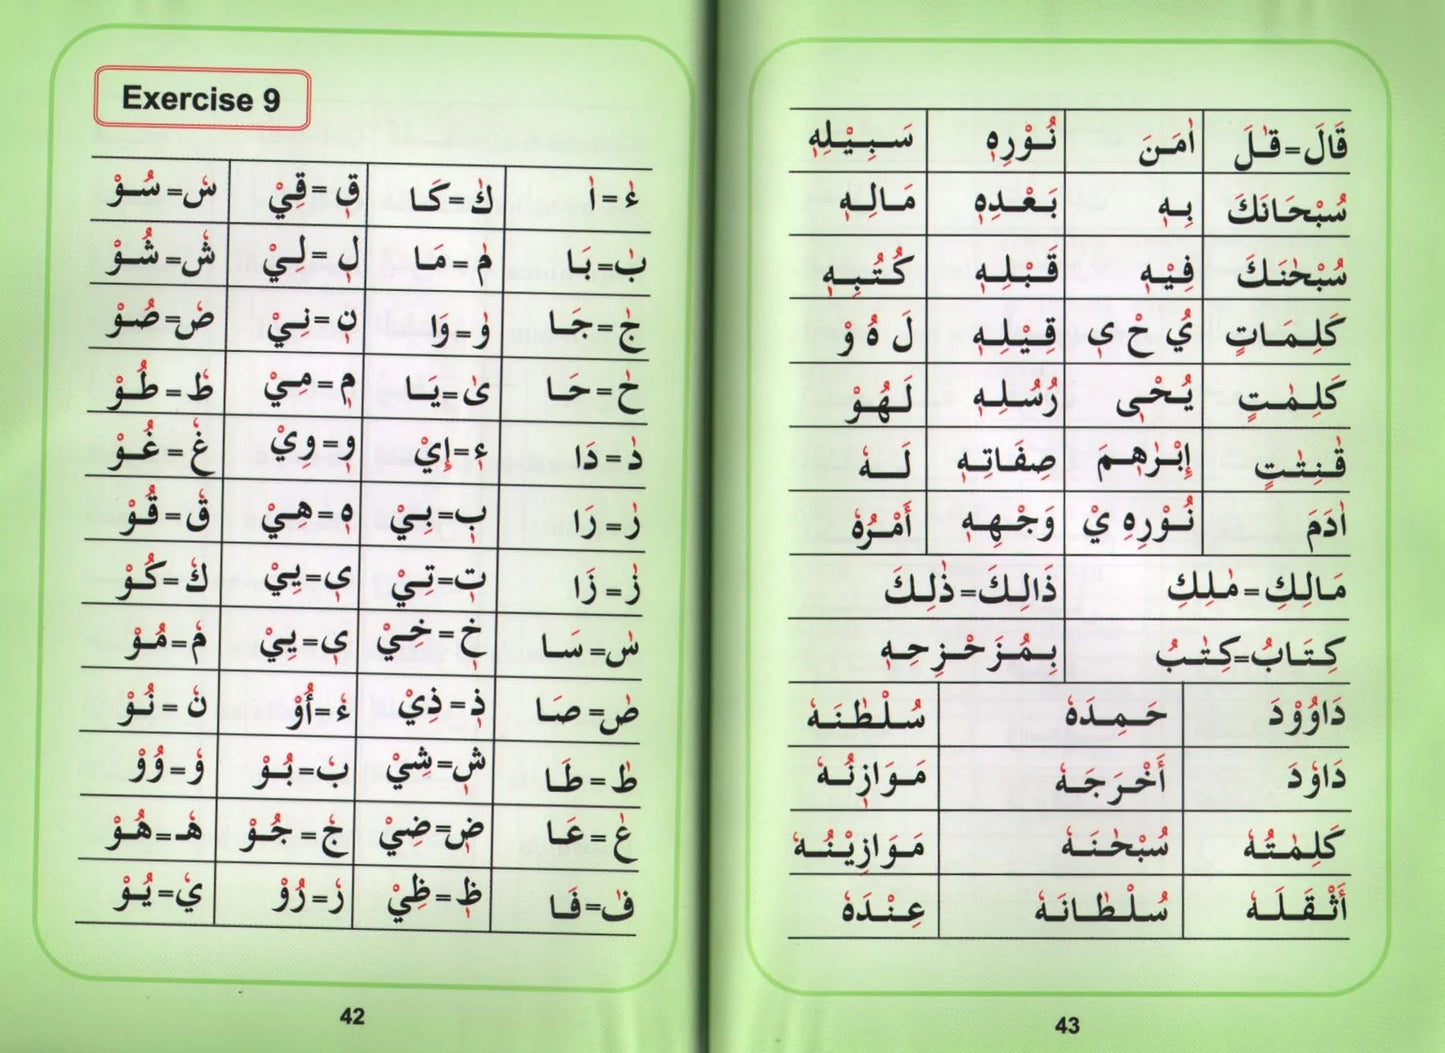 Exercise 9
ءٰ=اٰ كٰ=كَا قٖ=قِيْ سٗ=سُوْ
بٰ=بَا مٰ=مَا لٖ=لِيْ شٗ=شُوْ
جٰ=جَا وٰ=وَا نٖ=نِيْ صٗ=صُوْ
حٰ=حَا ىٰ=يَا مٖ=مِيْ طٗ=طُوْ
دٰ=دَا ءٖ=إِيْ وٖ=وِيْ غٗ=غُوْ
رٰ=رَا بٖ=بِيْ هٖ=هِيْ قٗ=قُوْ
زٰ=زَا تٖ=تِيْ يٖ=يِيْ كٗ=كُوْ
سٰ=سَا خٖ=خِيْ يٖ=يِيْ مٗ=مُوْ
صٰ=صَا ذٖ=ذِيْ ءٗ=أُوْ نٗ=نُوْ
طٰ=طَا شٖ=شِيْ بٗ=بُوْ وٗ=وُوْ
عٰ=عَا ضٖ=ضِيْ جٗ=جُوْ هٗ=هُوْ
فٰ=فَا ظٖ=ظِيْ رٗ=رُوْ يٗ=يُوْ
42
قَالَ=قٰلَ اٰمَنَ نُوْرِهٖ سَبِيْلِهٖ
سُبْحَانَكَ بِهٖ بَعْدِهٖ مَالِهٖ
سُبْحٰنَكَ فِيْهٖ قَبْلِهٖ كُتُبِهٖ
كَلِمَاتٍ يُ حْ يٖ قِيْلِهٖ لَ هُ وْ
كَلِمٰتٍ يُحْيٖ رُسُلِهٖ لَهُوْ
قٰنِتٰتٍ إِبْرٰهٖمَ صِفَاتِهٖ لَهٗ
اٰدَمَ نُوْرِهِ يْ وَجْهِهٖ أَمْرُهٗ
مَالِكِ=مٰلِكِ ذَالِكَ=ذٰلِكَ
كِتَابُ=كِتٰبُ بِمُزَحْزِحِهٖ
دَاوُوْدَ حَمِدَهٗ سُلْطٰنَهٗ
دَاوٗدَ أَخْرَجَهٗ مَوَازِنُهٗ
كَلِمٰتُهٗ سُبْحٰنَهٗ مَوَازِيْنُهٗ
أَثْقَلَهٗ سُلْطَانَهٗ عِنْدَهٗ
43